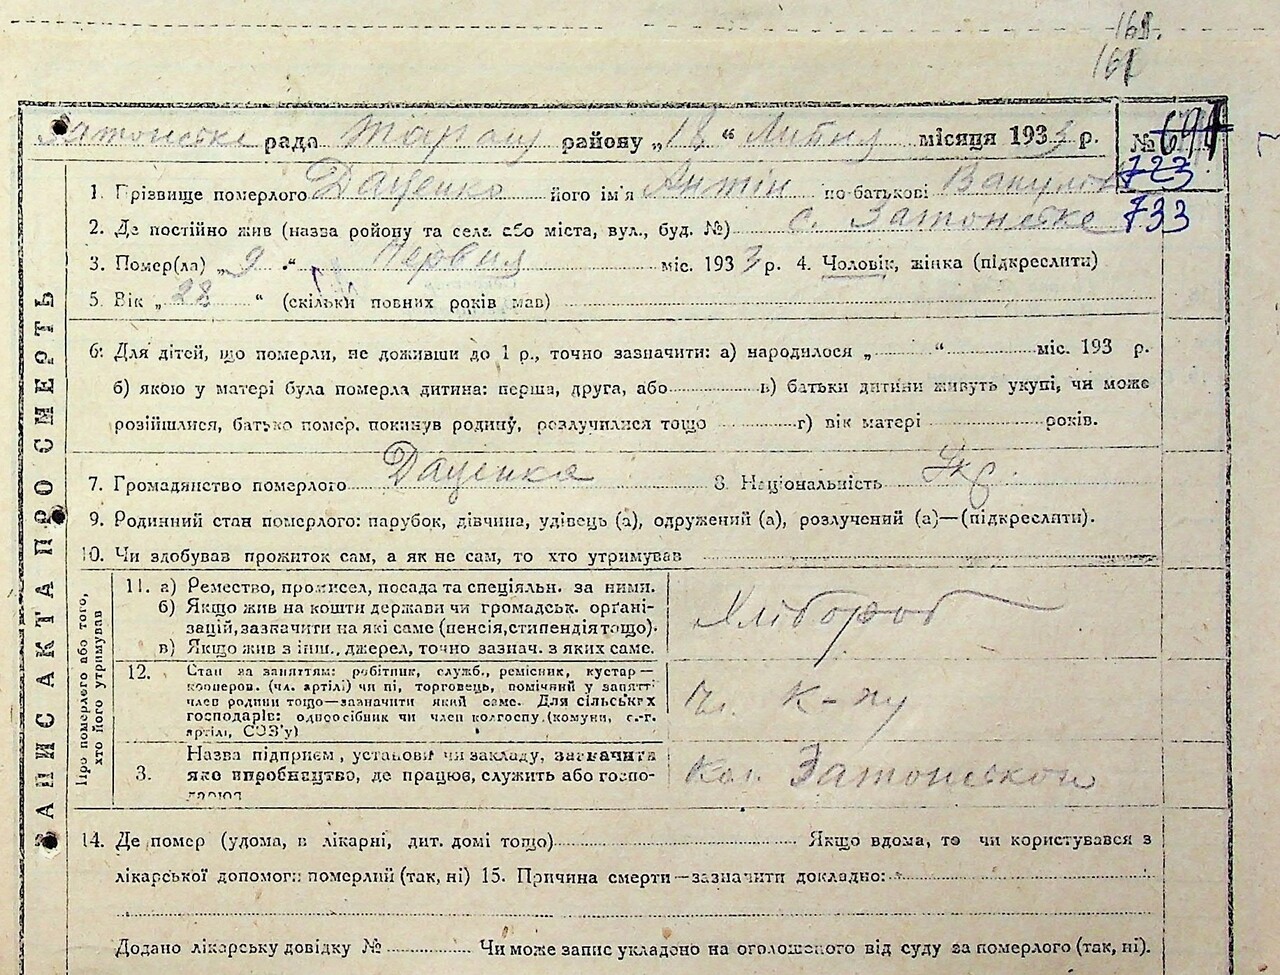 161
Затонське рада району „18“ Липня місяця 1933 р. №
723
1. Прізвище померлого Даценко його ім'я Антін по-батькові Вакулов
2. Де постійно жив (назва району та села або міста, вул., буд. №) с. Затонське 733
3. Помер(ла) „9“ Червня міс. 1933 р. 4. Чоловік, жінка (підкреслити)
5. Вік „28“ (скільки повних років мав)
6. Для дітей, що померли, не доживши до 1 р., точно зазначити: а) народилося „ “ міс. 193 р.
б) якою у матері була померла дитина: перша, друга, або в) батьки дитини живуть укупі, чи може
розійшлися, батько помер, покинув родину, розлучилися тощо г) вік матері років.
7. Громадянство померлого Даценко 8. Національність Укр.
9. Родинний стан померлого: парубок, дівчина, удівець (а), одружений (а), розлучений (а)—(підкреслити).
10. Чи здобував прожиток сам, а як не сам, то хто утримував
ЗАПИС АКТА ПРО СМЕРТЬ
Про померлого або того,
хто його утримував
11. а) Ремество, промисел, посада та спеціяльн. за ними.
б) Якщо жив на кошти держави чи громадськ. орґані-
зацій, зазначити на які саме (пенсія, стипендія тощо).
в) Якщо жив з інш. джерел, точно зазнач. з яких саме.
Хлібороб
12. Стан за заняттям: робітник, служб., ремісник, кустар—
кооперов. (чл. артілі) чи ні, торговець, помічний у занятті
член родини тощо—зазначити який саме. Для сільських
господарів: одноосібник чи член колгоспу (комуни, с.-г.
артілі, СОЗ'у)
Чл. к-пу
3. Назва підприєм., установи чи закладу, зазначити
яке виробництво, де працює, служить або госпо-
дарює
Кол. Затонской
14. Де помер (удома, в лікарні, дит. домі тощо) Якщо вдома, то чи користувався з
лікарської допомоги померлий (так, ні) 15. Причина смерти—зазначити докладно:
Додано лікарську довідку № Чи може запис укладено на оголошеного від суду за померлого (так, ні).